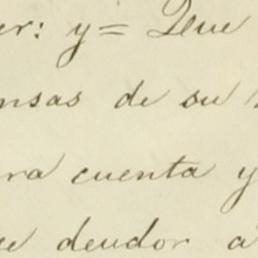 er: y= Que
nsas de su
ra cuenta y
e deudor a